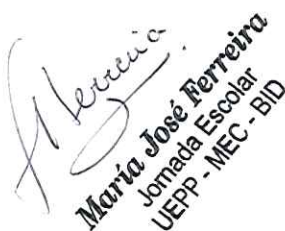 Ferreira
María José Ferreira
Jornada Escolar
UEPP - MEC - BID